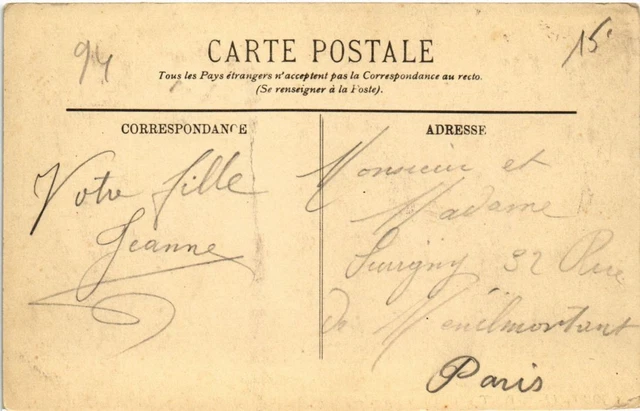 94
15
CARTE POSTALE
Tous les Pays étrangers n'acceptent pas la Correspondance au recto.
(Se renseigner à la Poste).
CORRESPONDANCE
ADRESSE
Votre fille
Jeanne
Monsieur et
Madame
32 Rue
de Menilmontant
Paris